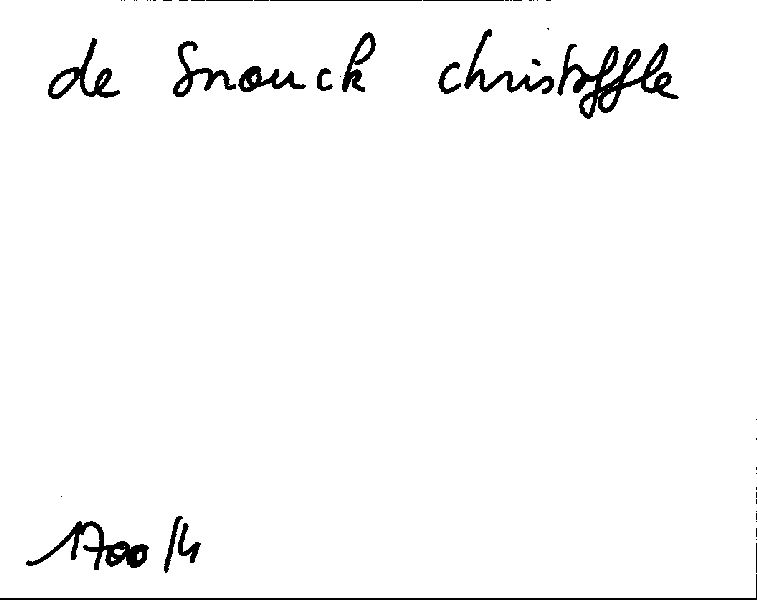 de Snouck christoffle
1700/4